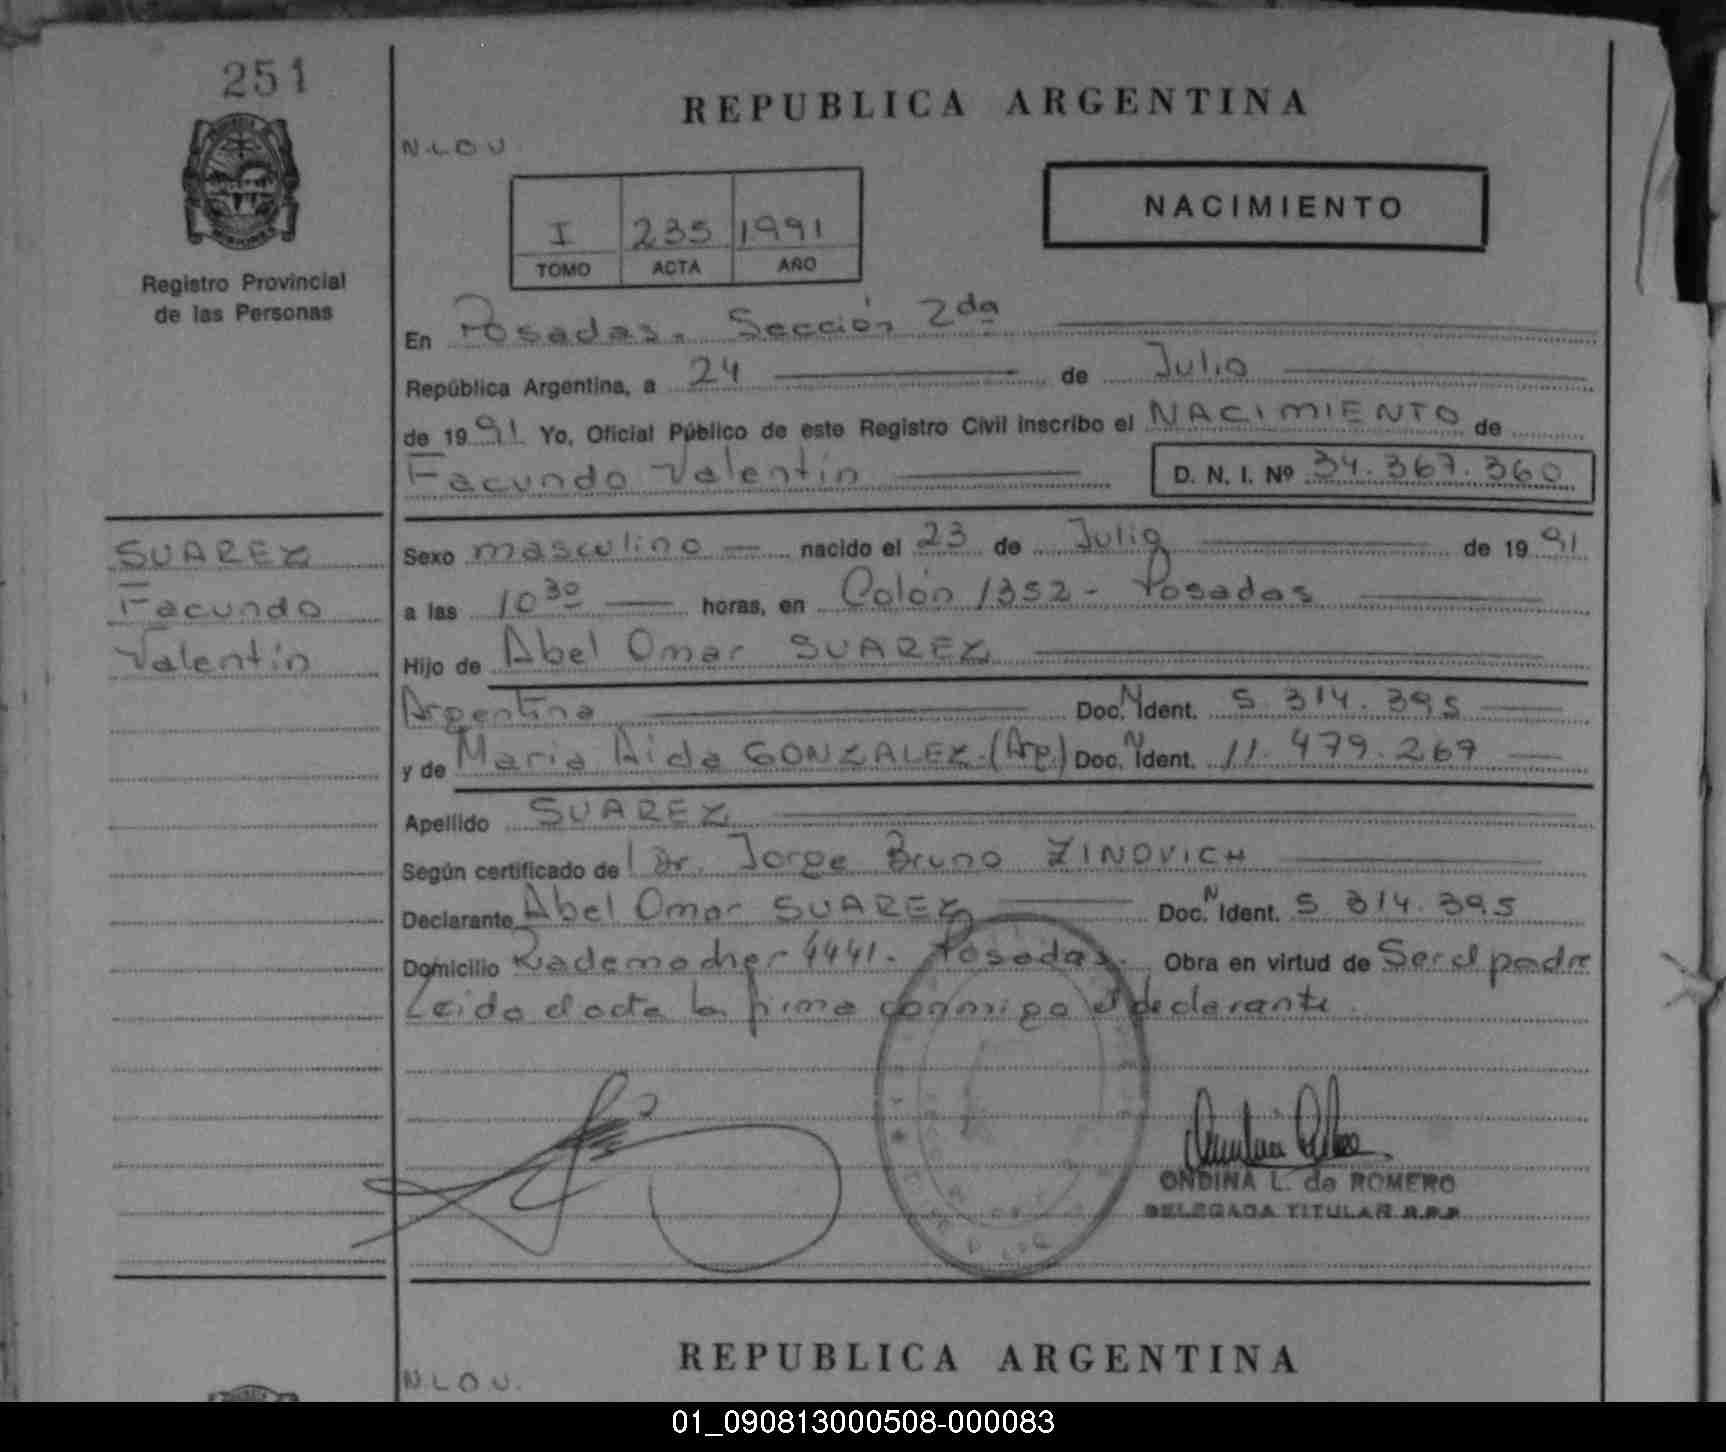 251
REPUBLICA ARGENTINA
N.L.O.U
NACIMIENTO
I 235 1991
TOMO ACTA AÑO
Registro Provincial
de las Personas
En Posadas. Sección 2da
República Argentina, a 24 de Julio
de 1991 Yo, Oficial Público de este Registro Civil inscribo el NACIMIENTO de
Facundo Valentín D. N. I. Nº 34.367.360
SUAREZ
Facundo
Valentín
Sexo masculino nacido el 23 de Julio de 1991
a las 10 30 horas, en Colón 1352 - Posadas
Hijo de Abel Omar SUAREZ
Argentina Doc. N Ident. 5.314.395
y de Maria Aida GONZALEZ (Arg.) Doc. N Ident. 11.479.267
Apellido SUAREZ
Según certificado de Dr. Jorge Bruno ZINOVICH
Declarante Abel Omar SUAREZ Doc. N Ident. 5 314.395
Domicilio Rademacher 4441. Posadas. Obra en virtud de Ser el padre
Leida el acta la firma conmigo el declarante.
ONDINA L. de ROMERO
DELEGADA TITULAR R.P.P.
REPUBLICA ARGENTINA
N.L.O.U.
01_090813000508-000083